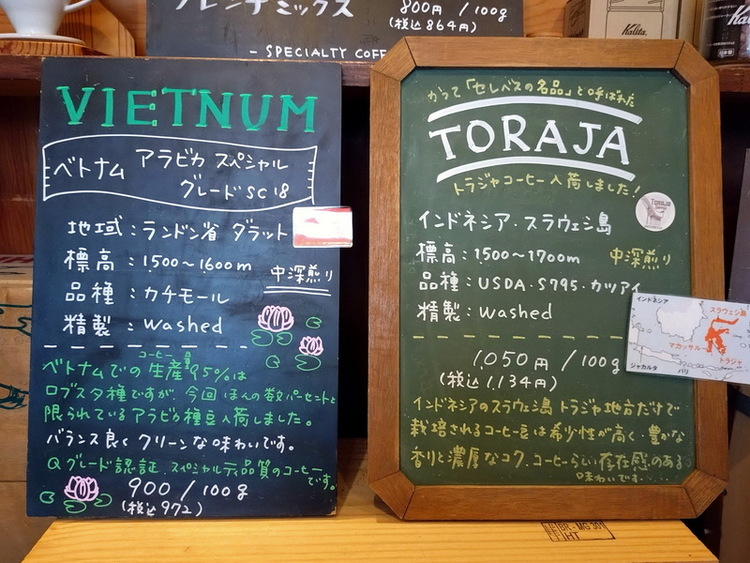 フレンチミックス
800円 / 100g
(税込864円)
- SPECIALTY COFF
Kalita
Kalita
VIETNUM
ベトナム アラビカ スペシャル
グレード SC18
地域:ランドン省 ダラット
標高:1,500〜1,600m
中深煎り
品種:カチモール
精製:Washed
ベトナムでのコーヒー生産量95%は
ロブスタ種ですが、今回ほんの数パーセントと
限られているアラビカ種豆入荷しました。
バランス良くクリーンな味わいです。
Qグレード認証、スペシャルティ品質のコーヒーです。
900 / 100g
(税込972)
かつて「セレベスの名品」と呼ばれた
TORAJA
トラジャコーヒー入荷しました!
TORAJA
インドネシア・スラウェシ島
標高:1500〜1700m
中深煎り
品種:USDA・S795・カツアイ
精製:Washed
1,050円 / 100g
(税込1,134円)
インドネシアのスラウェシ島 トラジャ地方だけで
栽培されるコーヒー豆は希少性が高く、豊かな
香りと濃厚なコク、コーヒーらしい存在感のある
味わいです・・・・・
インドネシア
スラウェシ島
マカッサル
トラジャ
ジャカルタ
バリ
BR - MG 301
HT